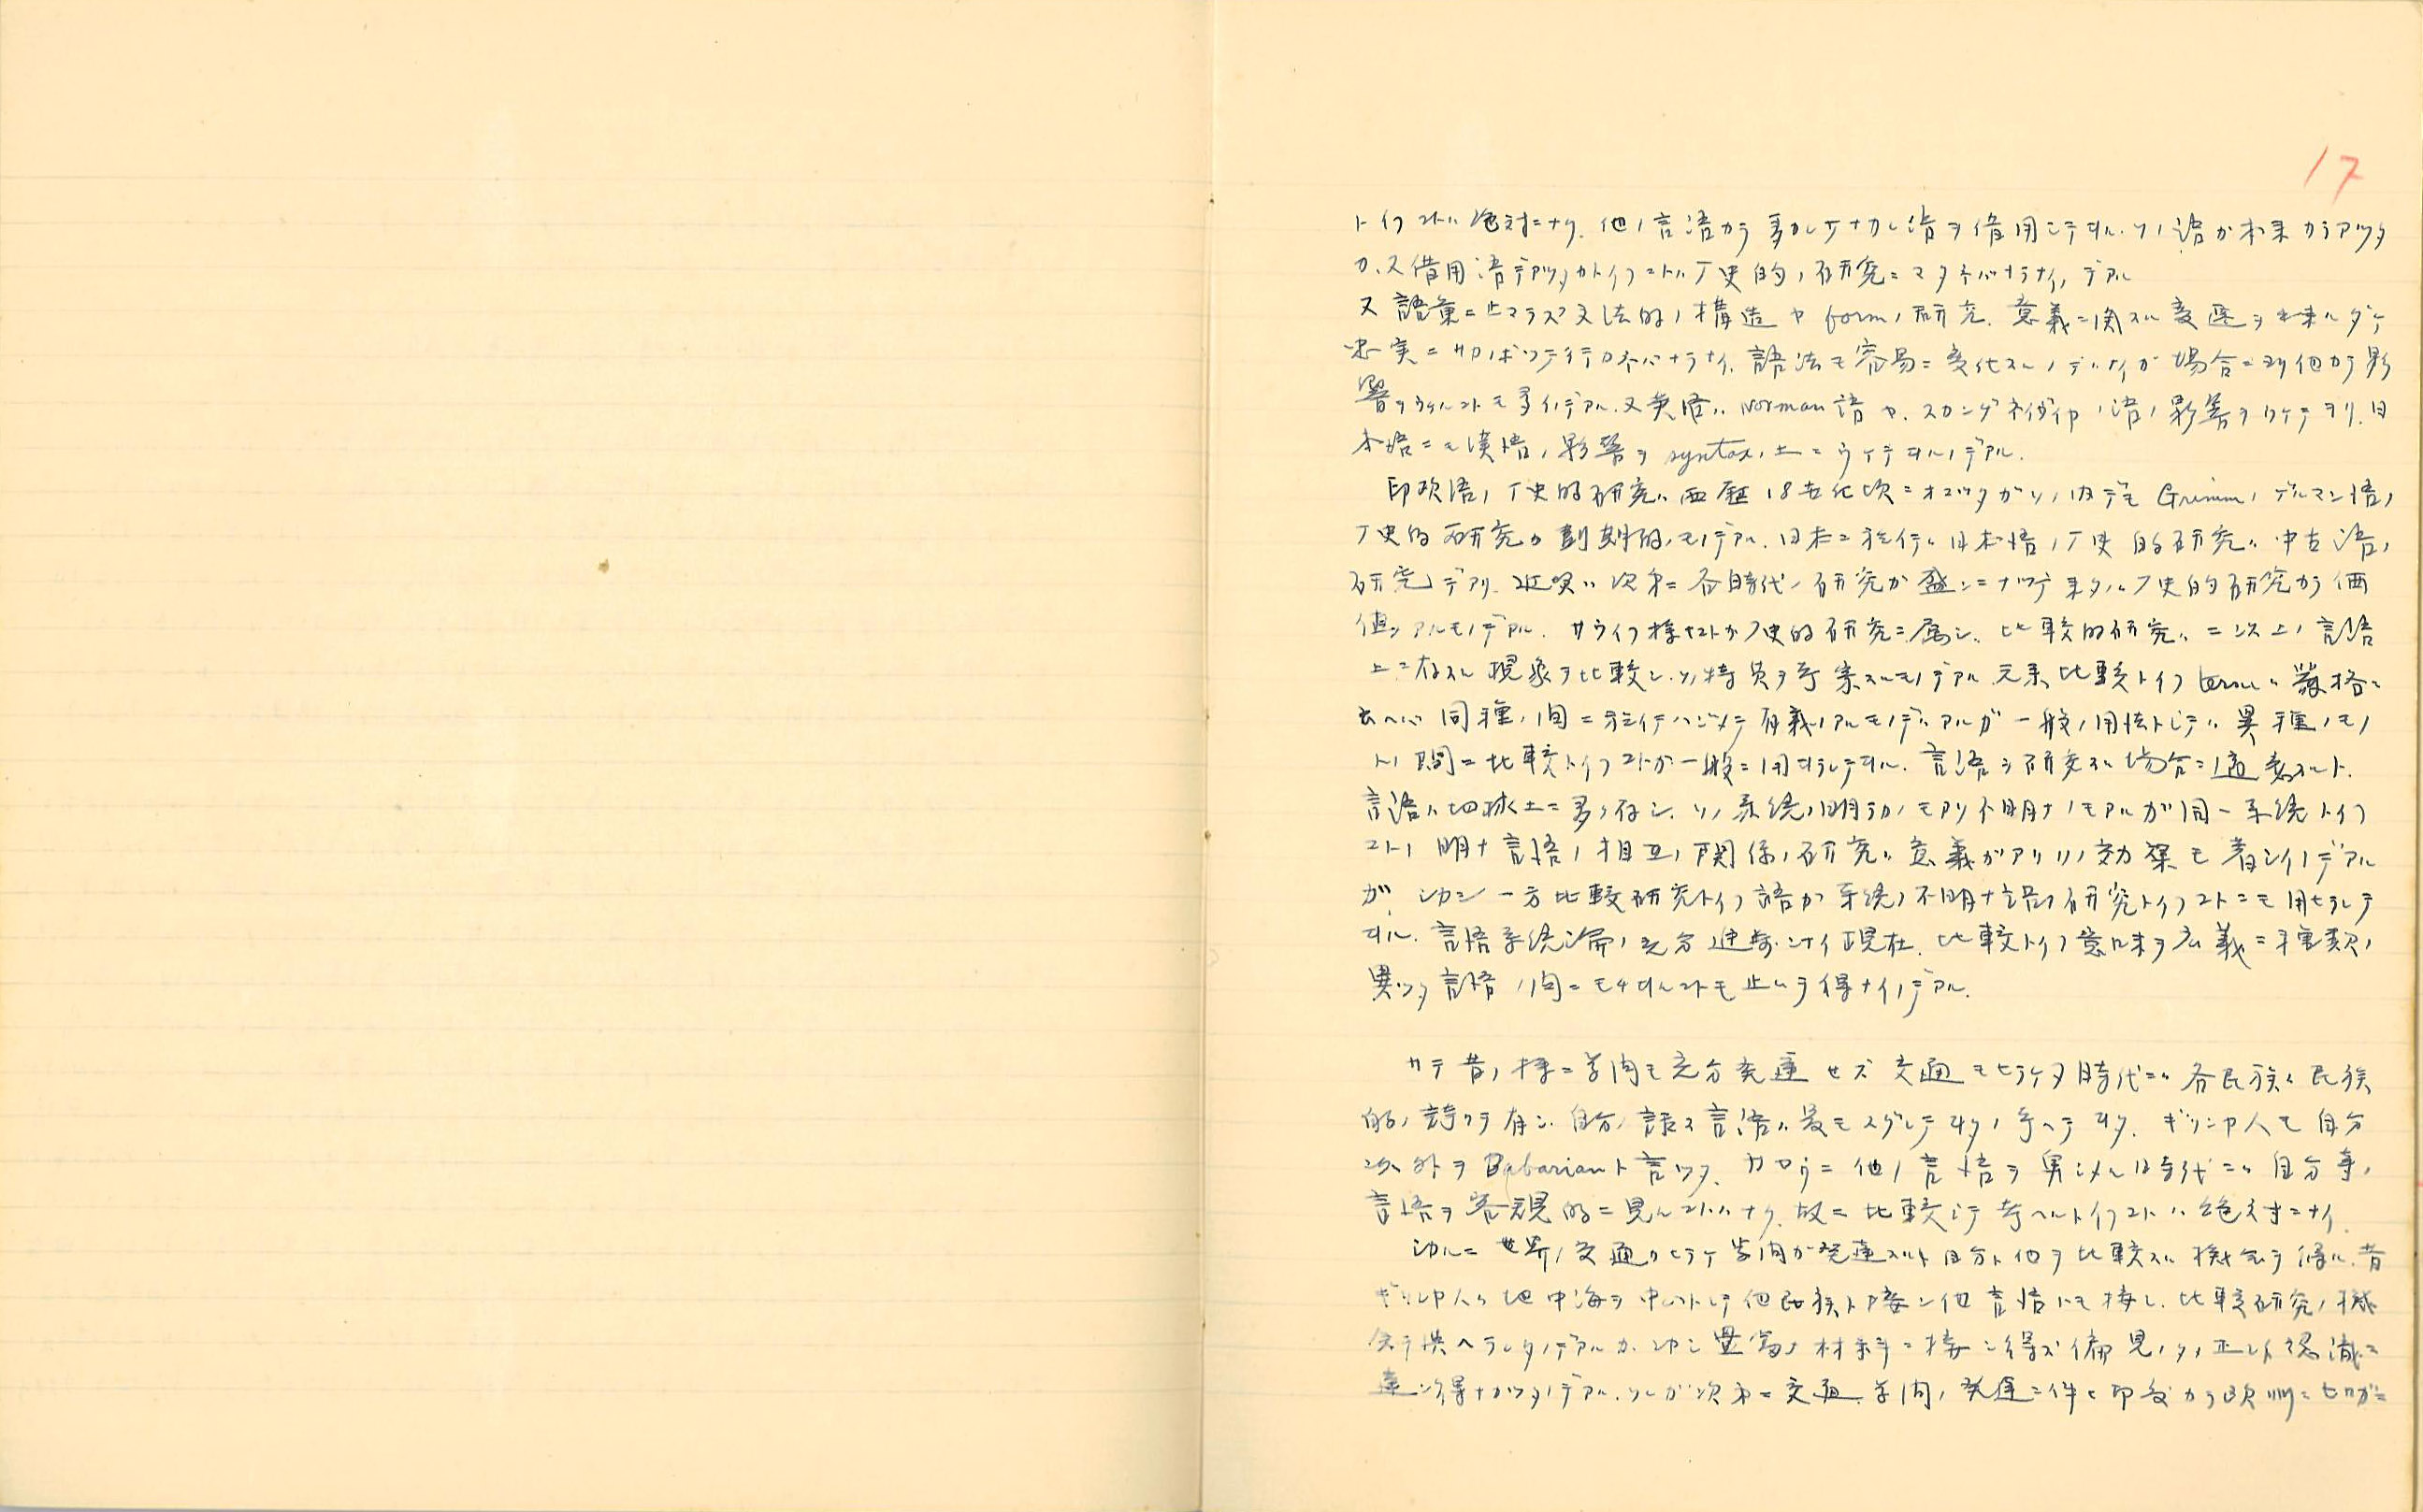 17
トイフコトハ絶対ニナク.他ノ言語カラ多カレ少ナカレ語ヲ借用シテヰル.ソノ語ガ本来カラアツタ
カ、又借用語デアツタカトイフコトハ丁史的ノ研究ニマタネバナラナイノデアル
又語彙ニ止マラズ文法的ノ構造ヤform,研究.意義ニ関スル変遷ヲ出来ルダケ
忠実ニサカノボツテ行カネバナラナイ.語法モ容易ニ変化スルノデハナイガ場合ニヨリ他カラ影
響ヲウケルコトモ多イノデアル.又英語ハNorman語ヤ.スカンヂネイヴィヤノ語ノ影響ヲウケテヲリ.日
本語ニモ漢語ノ影響ヲsyntaxノ上ニウケテヰルノデアル.
印欧語ノ丁史的研究ハ西歴18世紀頃ニオコツタガソノ内デモGrimmノゲルマン語ノ
丁史的研究ガ劃期的ノモノデアル.日本ニ於テハ日本語ノ丁史的研究ハ中古語ノ
研究デアリ.近頃ハ次第ニ各時代ノ研究ガ盛ンニナツテ来タ.丁史的研究カラ価
値ノアルモノデアル.サウイフ様ナコトガ丁史的研究ニ属シ、比較的研究ハ二以上ノ言語
上ニ存スル現象ヲ比較シ.ソノ特質ヲ考察スルモノデアル.元来比較トイフtermハ厳格ニ
云ヘバ同種ノ間ニ於テハジメテ有義ノアルモノデアルガ一般ノ用法トシテハ異種ノモノ
トノ間ニ比較トイフコトガ一般ニ用ヰラレテヰル.言語ヲ研究スル場合ニ適応スルト.
言語ハ地球上ニ多ク存シ.ソノ系統ノ明ラカノモアリ不明ナノモアルガ同一系統トイフ
コトノ明ナ言語ノ相互ノ関係ノ研究ハ意義ガアリソノ効果モ著シイノデアル
ガ.シカシ一方比較研究トイフ語ガ系統ノ不明ナ言語ノ研究トイフコトニモ用ヒラレテ
ヰル.言語系統論ノ充分進歩シナイ現在.比較トイフ意味ヲ広義ニ種類ノ
異ツタ言語ノ間ニモチヰルコトモ止ムヲ得ナイノデアル.
サテ昔ノ様ニ学問モ充分発達セズ交通モヒラケヌ時代ニハ各民族ハ民族
的ノ誇リヲ有シ.自分ノ話ス言語ハ最モスグレテヰタト考ヘテヰタ.ギリシヤ人モ自分
以外ヲBabarianト言ツタ.カヤウニ他ノ言語ヲ卑シメル時代ニハ自分等ノ
言語ヲ客観的ニ見ルコトハナク.故ニ比較シテ考ヘルトイフコトハ絶対ニナイ.
シカルニ世界ノ交通ガヒラケ学問ガ発達スルト自分ト他ヲ比較スル機会ヲ得ル.昔
ギリシヤ人ハ地中海ヲ中心トシテ他民族ト接シ他言語ニモ接シ.比較研究ノ機
会ヲ供ヘラレタノデアルガ.シカシ豊富ナ材料ニ接シ得ズ偏見ノタメ正シイ認識ニ
達シ得ナカツタノデアル.ソレガ次第ニ交通.学問ノ発達ニ伴ヒ印度カラ欧州ニヒロガル